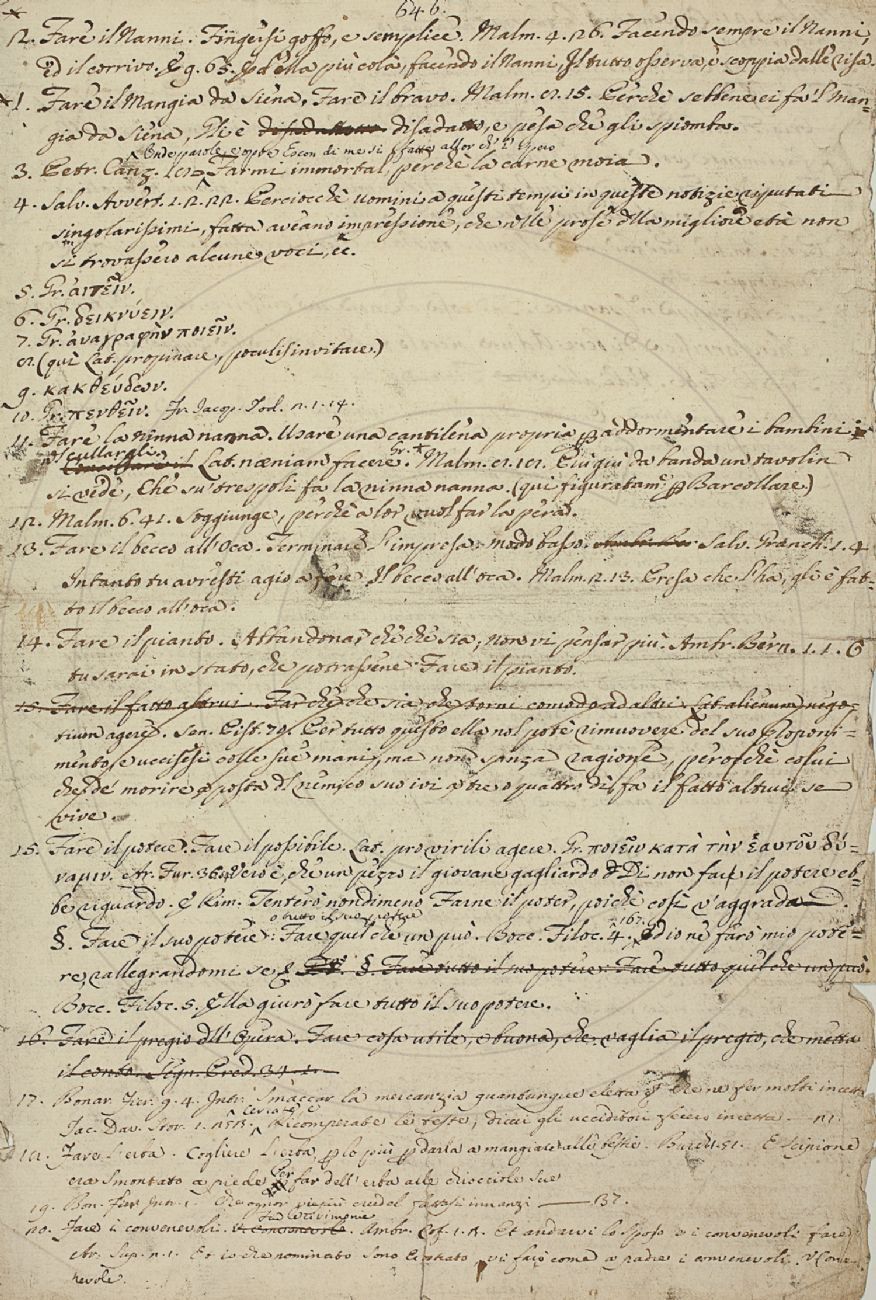 646.
2. Fare il Nanni. Fingersi goffo, e semplice. Malm. 4. 26. Facendo sempre il Nanni,
ed il corrivo. E 9. 65. Ed ella più cola, facendo il Nanni, Il tutto osserva, e scoppia dalle risa.
1. Fare il Mangia da Siena. Fare il bravo. Malm. 2. 15. Perchè sebbene ei fa 'l Man-
gia da Siena, Egli è disadatto, e pesa che gli spiomba.
Onde parole, e opre
3. Petr. Canz. Farmi immortal, perchè la carne moia.
4. Salv. Avvert. 1. 2. 22. Perciocchè uomini a questi tempi in queste notizie riputati
singolarissimi, fatta aveano impressione, che nelle prose della migliore età non
si trovassero alcune voci, ec.
5. Gr. αἰτεῖν.
6. Gr. δεικνύειν.
7. Gr. ἀναγραφὴν ποιεῖν.
8. (qui Lat. propinare, poculis invitare.)
9. κακθεύδων.
10. Gr. πενθεῖν. Fr. Jacop. Tod. 2. 1. 14.
11. Fare la ninna nanna. Usare una cantilena propria p addormentare i bambini
Lat. næniam facere. Gr. Malm. Quigiù da banda un tavolin
si vede, Che su' trespoli fa la ninna nanna. (qui figuratam. p Barcollare.)
12. Malm. 6. 41. Soggiunge, perchè a lor vuol far la pera.
13. Fare il becco all'Oca. Terminare l'impresa: modo basso. Salv. Granch. 1. 4
Intanto tu avresti agio a fare Il becco all'oca. Malm. 2. 13. Cresa che l'ha, gli è fat-
to il becco all'oca.
14. Fare il pianto. Abbandonar chè che sia, non vi pensar più. Ambr. Bern. 1. 1. E
tu sarai in stato, che potrassene Fare il pianto.
15. Fare il fatto altrui. Far chè che sia, che torni comodo ad altri. Lat. alienum nego-
tium agere. Sen. Pist. 70. Per tutto questo ella nol potè rimuovere del suo proponi-
mento, e uccisesi colle sue mani, ma non sanza ragione, perocchè colui
che de' morire a posta del nemico suo ivi a tre o quattro dì, fa il fatto altrui se
vive.
15. Fare il potere. Fare il possibile. Lat. pro virili agere. Gr. ποιεῖν κατὰ τὴν ἑαυτοῦ δύ-
ναμιν. Ar. Fur. Vero è, che un pezzo il giovane gagliardo Di non far il potere eb-
be riguardo. E Rim. Tenterò nondimeno Farne il poter, poichè così v'aggrada.
o tutto il suo potere
§. Fare il suo potere: Fare quel che un può. Bocc. Filoc. 4. 167. Ed io ne farò mio pote-
re, rallegrandomi se E §. Fare tutto il suo potere. Fare tutto quel che un può.
Bocc. Filoc. 5. Ella giurò fare tutto il suo potere.
16. Fare il pregio dell'Opera. Fare cosa utile, e buona, che vaglia il pregio, che metta
il conto. Segn. Pred. 34. 1.
17. Bonar. Fier. g. 4. Intr. Smaccar la mercanzia quantunque eletta È che ne fer molti incetta
Jac. Dav. Stor. 1. Ricomperate le teste, diceci gli ucciditori fecero incetta.
18. Fare l'erba. Cogliere l'erba, p lo più p darla a mangiare alle bestie. E Scipione
era smontato a piede Per far dell'erba alle chiocciole sue
19. Bon. Fier. Che ognor vie più crede fattosi innanzi — 137.
20. Fare i convenevoli. Ambr. Cof. 1. 2. Et andarvi lo sposo e i convenevoli fare
Ar. Sup. 2. 1. Er io che nominato sono Erostrato, vi fo come a padre i convenevoli. V. Conve-
nevole.